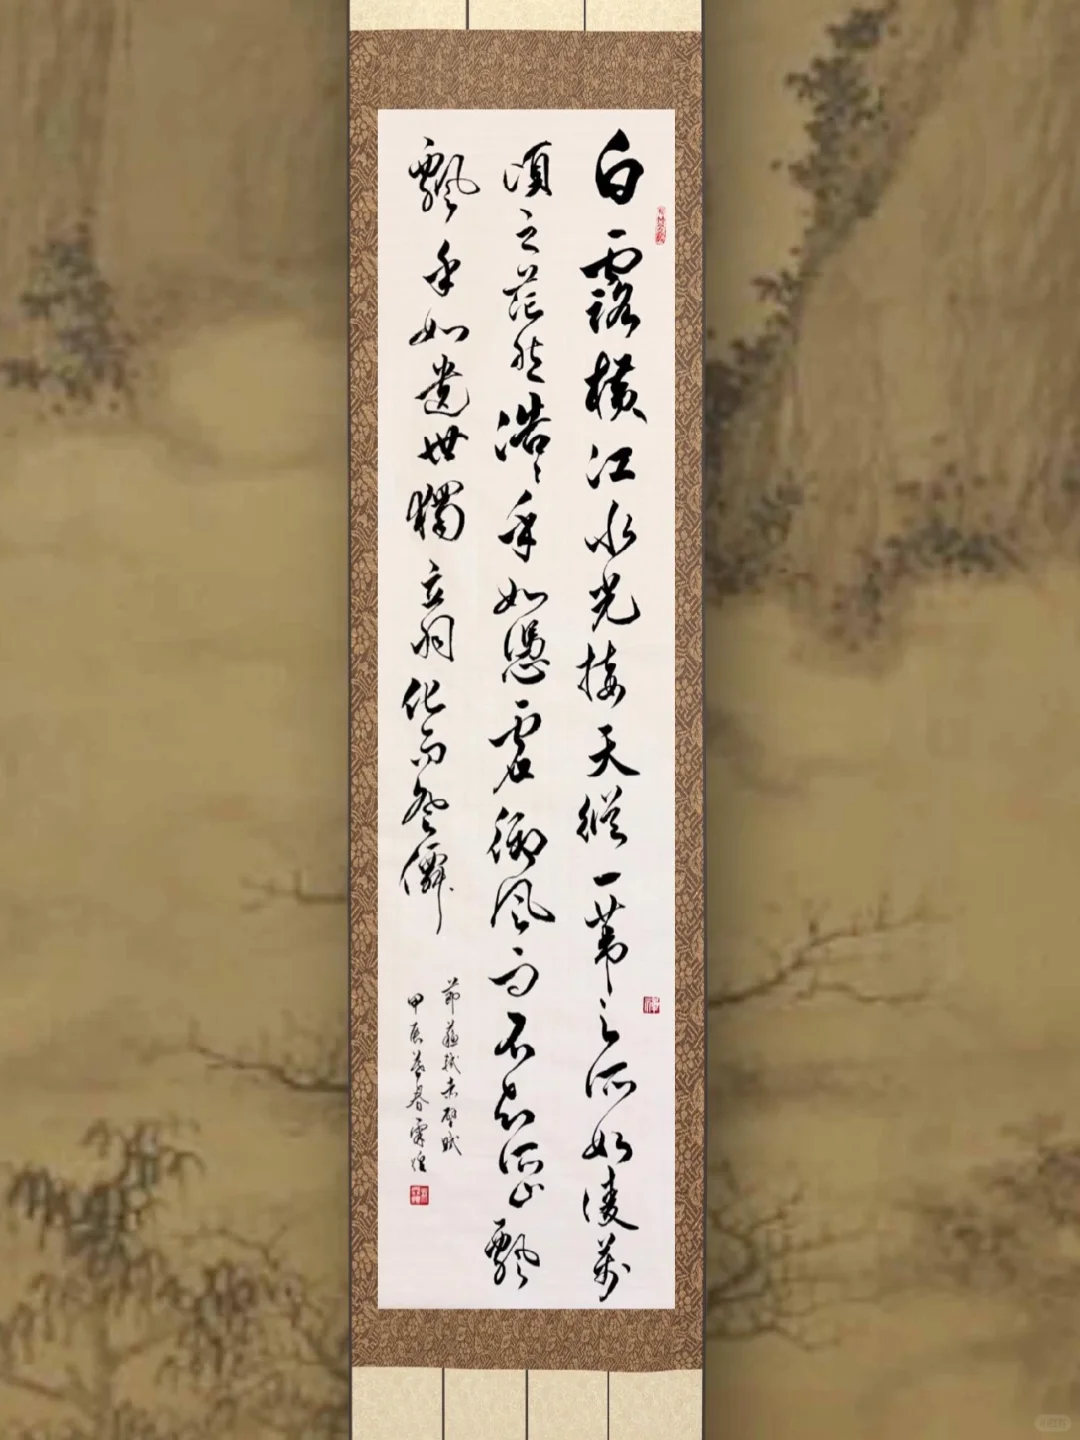 白露橫江水光接天縱一葦之所如凌萬
頃之茫然浩〻乎如憑虛御風而不知所止飄
飄乎如遺世獨立羽化而登僊
節蘇軾赤壁賦
甲辰暮春